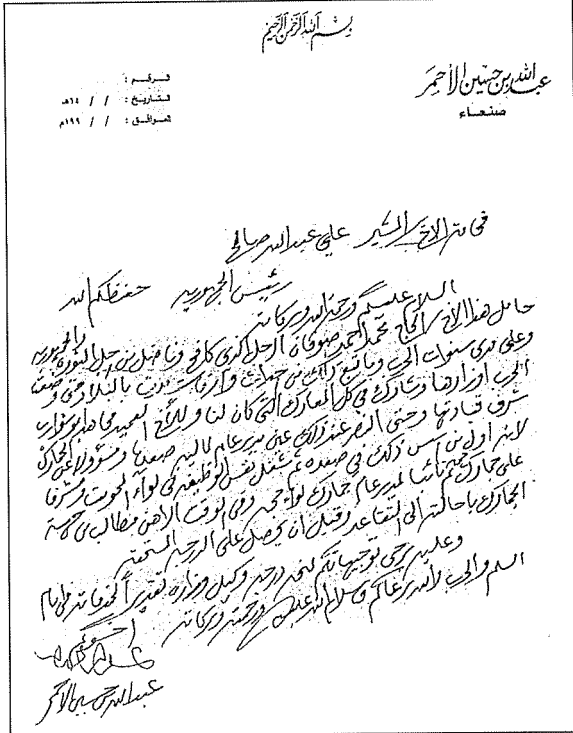 بسم الله الرحمن الرحيم
عبد الله بن حسين الأحمر
صنعاء
الرقم :
التاريخ : / / ١٤هـ
الموافق : / / ١٩٩م
فخامة الاخ المشير علي عبدالله صالح
رئيس الجمهورية حفظكم الله
السلام عليكم ورحمة الله وبركاته
حامل هذا الاخ الحاج محمد احمد الرجل الذي كافح وناضل من اجل الثورة والجمهورية
وعلى مدى سنوات الحرب وما تبع ذلك من احداث حتى وضعت
الحرب اوزارها وشارك في كل المعارك التي كان لنا وللأخ العميد مجاهد ابو شوارب
شرف قيادتها وحتى النصر عند ذلك عين مدير عام لمالية صعده ومسؤولا على الجمارك
لانه اول من اسس ذلك في صعده ثم شغل نفس الوظيفة في لواء المحويت ومشرفا
على جمارك ثم نائبا لمدير عام جمارك لواء حجه وفي الوقت الراهن مطالب من
الجمارك باحالته الى التقاعد وقبل ان يحصل على الدرجة المستحقة
وعليه نرجو توجيهاتكم بمنحه درجة وكيل وزارة تقديرا لخدماته في ايام
السلم والحرب والله يرعاكم والسلام عليكم ورحمة الله وبركاته
اخوكم
عبدالله بن حسين الاحمر